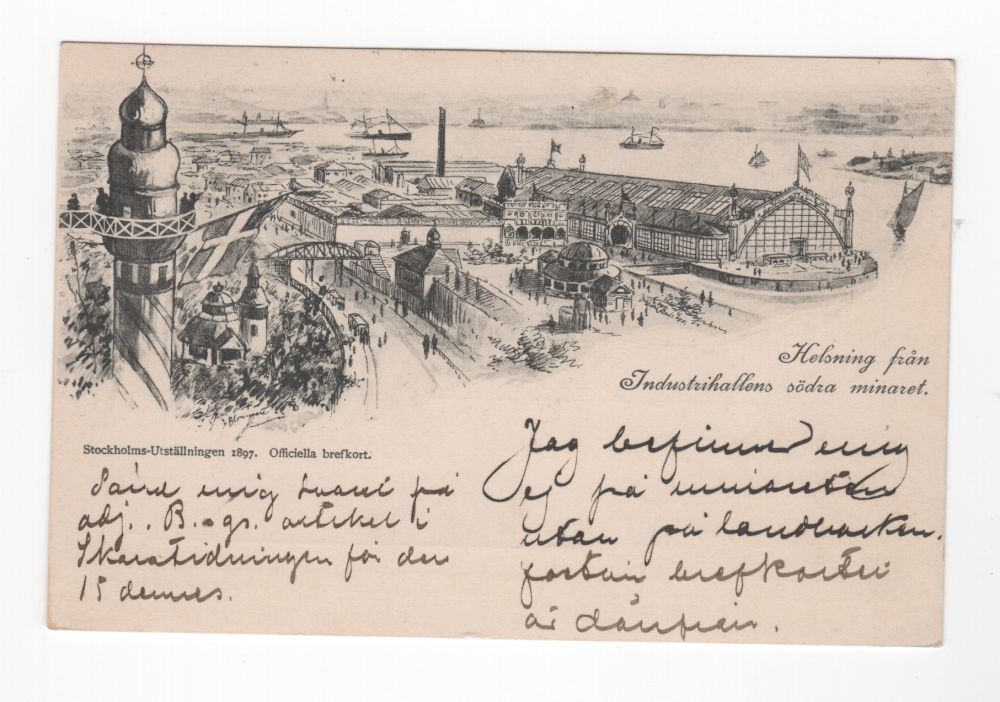 Helsning från
Industrihallens södra minaret.
Stockholms-Utställningen 1897. Officiella brefkort.
Jag befinner mig
ej på minareten
utan på landbacken.
fastän brefkortet
är därifrån.
Sänd mig svaret på
adj. B-gs. artikel i
Skaratidningen för den
15 dennes.